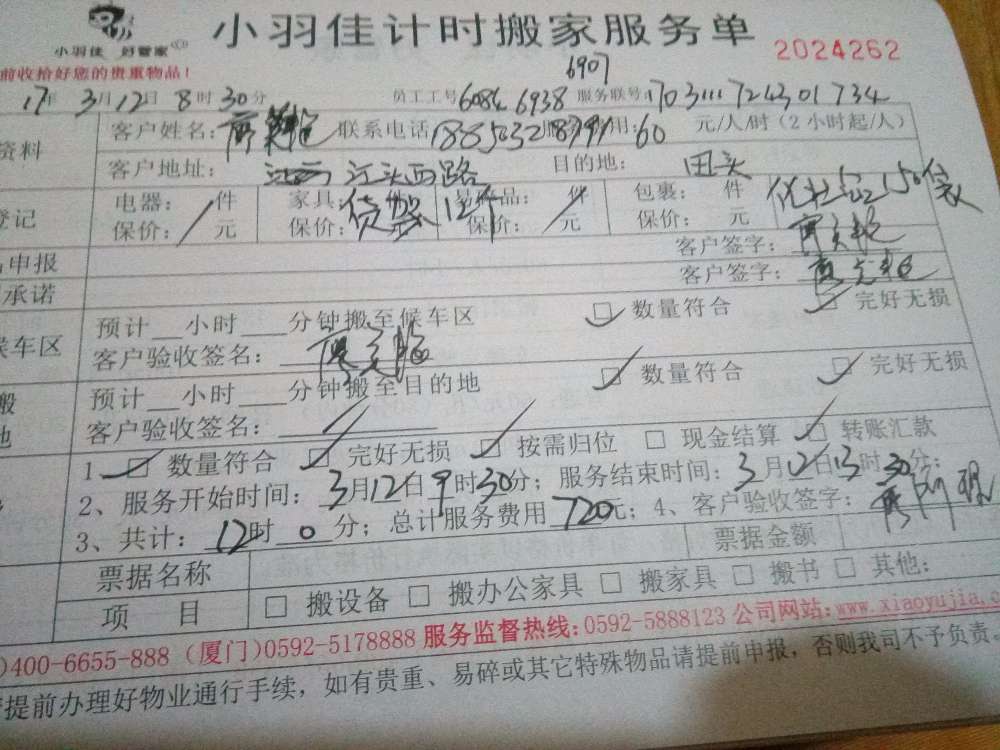 小羽佳 好管家
小羽佳计时搬家服务单
2024262
前收拾好您的贵重物品!
6907
17年 3月12日 8时30分 员工工号 6084 6938 服务联号 1703111724301734
资料 客户姓名: 联系电话 用:60 元/人/时(2小时起/人)
客户地址: 江头西路 目的地: 田头
登记 电器: 件 家具: 货架 12件 品: 件 包裹: 件 150袋
保价: 元 保价: 保价: 元 保价: 元
申报 客户签字:
承诺 客户签字:
候车区 预计__小时__分钟搬至候车区 数量符合 完好无损
客户验收签名:
搬 预计__小时__分钟搬至目的地 数量符合 完好无损
地 客户验收签名:
1、 数量符合 完好无损 按需归位 现金结算 转账汇款
2、服务开始时间:3月12日9时30分;服务结束时间:3月12日13时30分;
3、共计:12时0分;总计服务费用720元;4、客户验收签字:
票据名称 票据金额
项 目 搬设备 搬办公家具 搬家具 搬书 其他:
)400-6655-888 (厦门)0592-5178888 服务监督热线:0592-5888123 公司网站:www.xiaoyujia.c
提前办理好物业通行手续,如有贵重、易碎或其它特殊物品请提前申报,否则我司不予负责。